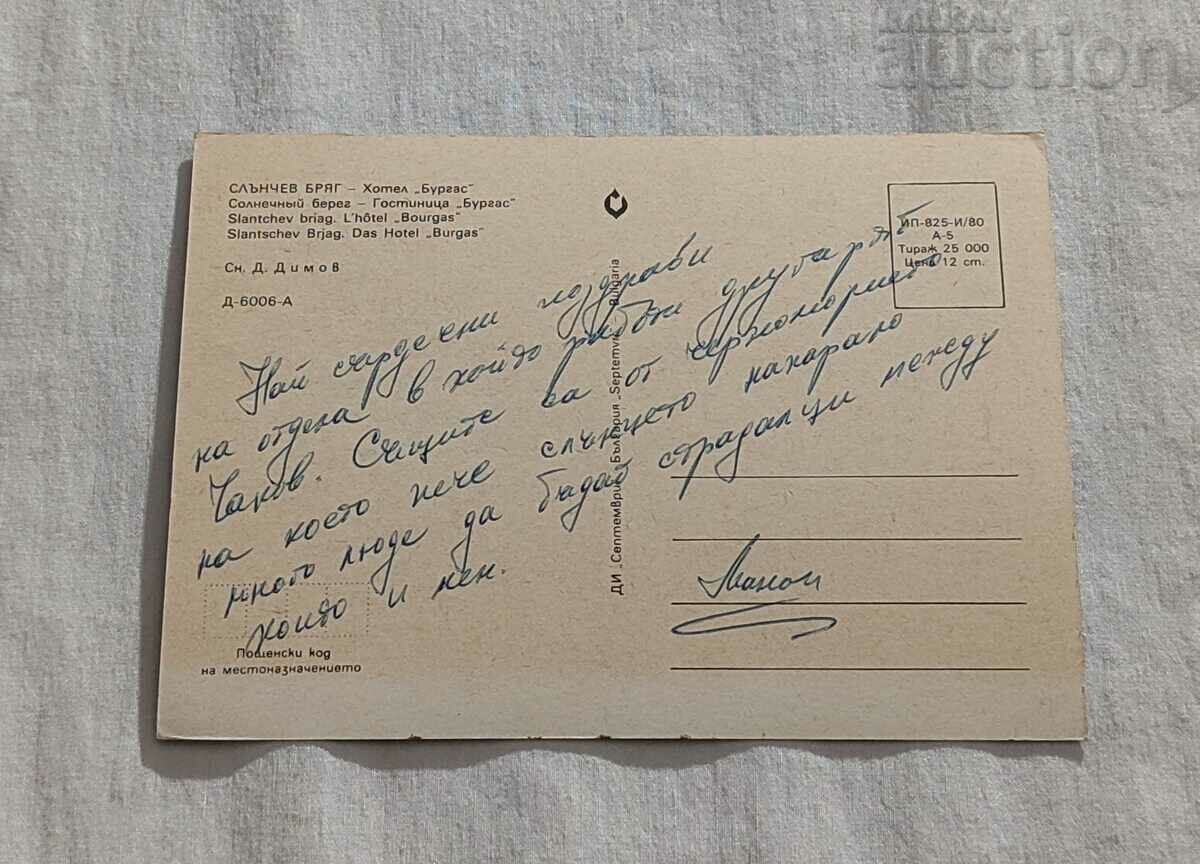 СЛЪНЧЕВ БРЯГ – Хотел „Бургас"
Солнечный берег – Гостиница „Бургас"
Slantchev briag. L'hôtel „Bourgas"
Slantschev Brjag. Das Hotel „Burgas"
Сн. Д. Димов
Д-6006-А
ИП-825-И/80
А-5
Тираж 25 000
Цена 12 ст.
Най сърдечни поздрави
на отдела в който работи другарят
Чаков. Същите са от черноморието
на което пече слънцето накарало
много люде да бъдат страдалци между
които и мен.
ДИ „Септември", България „Septemvri", Bulgaria
Пощенски код
на местоназначението
auction